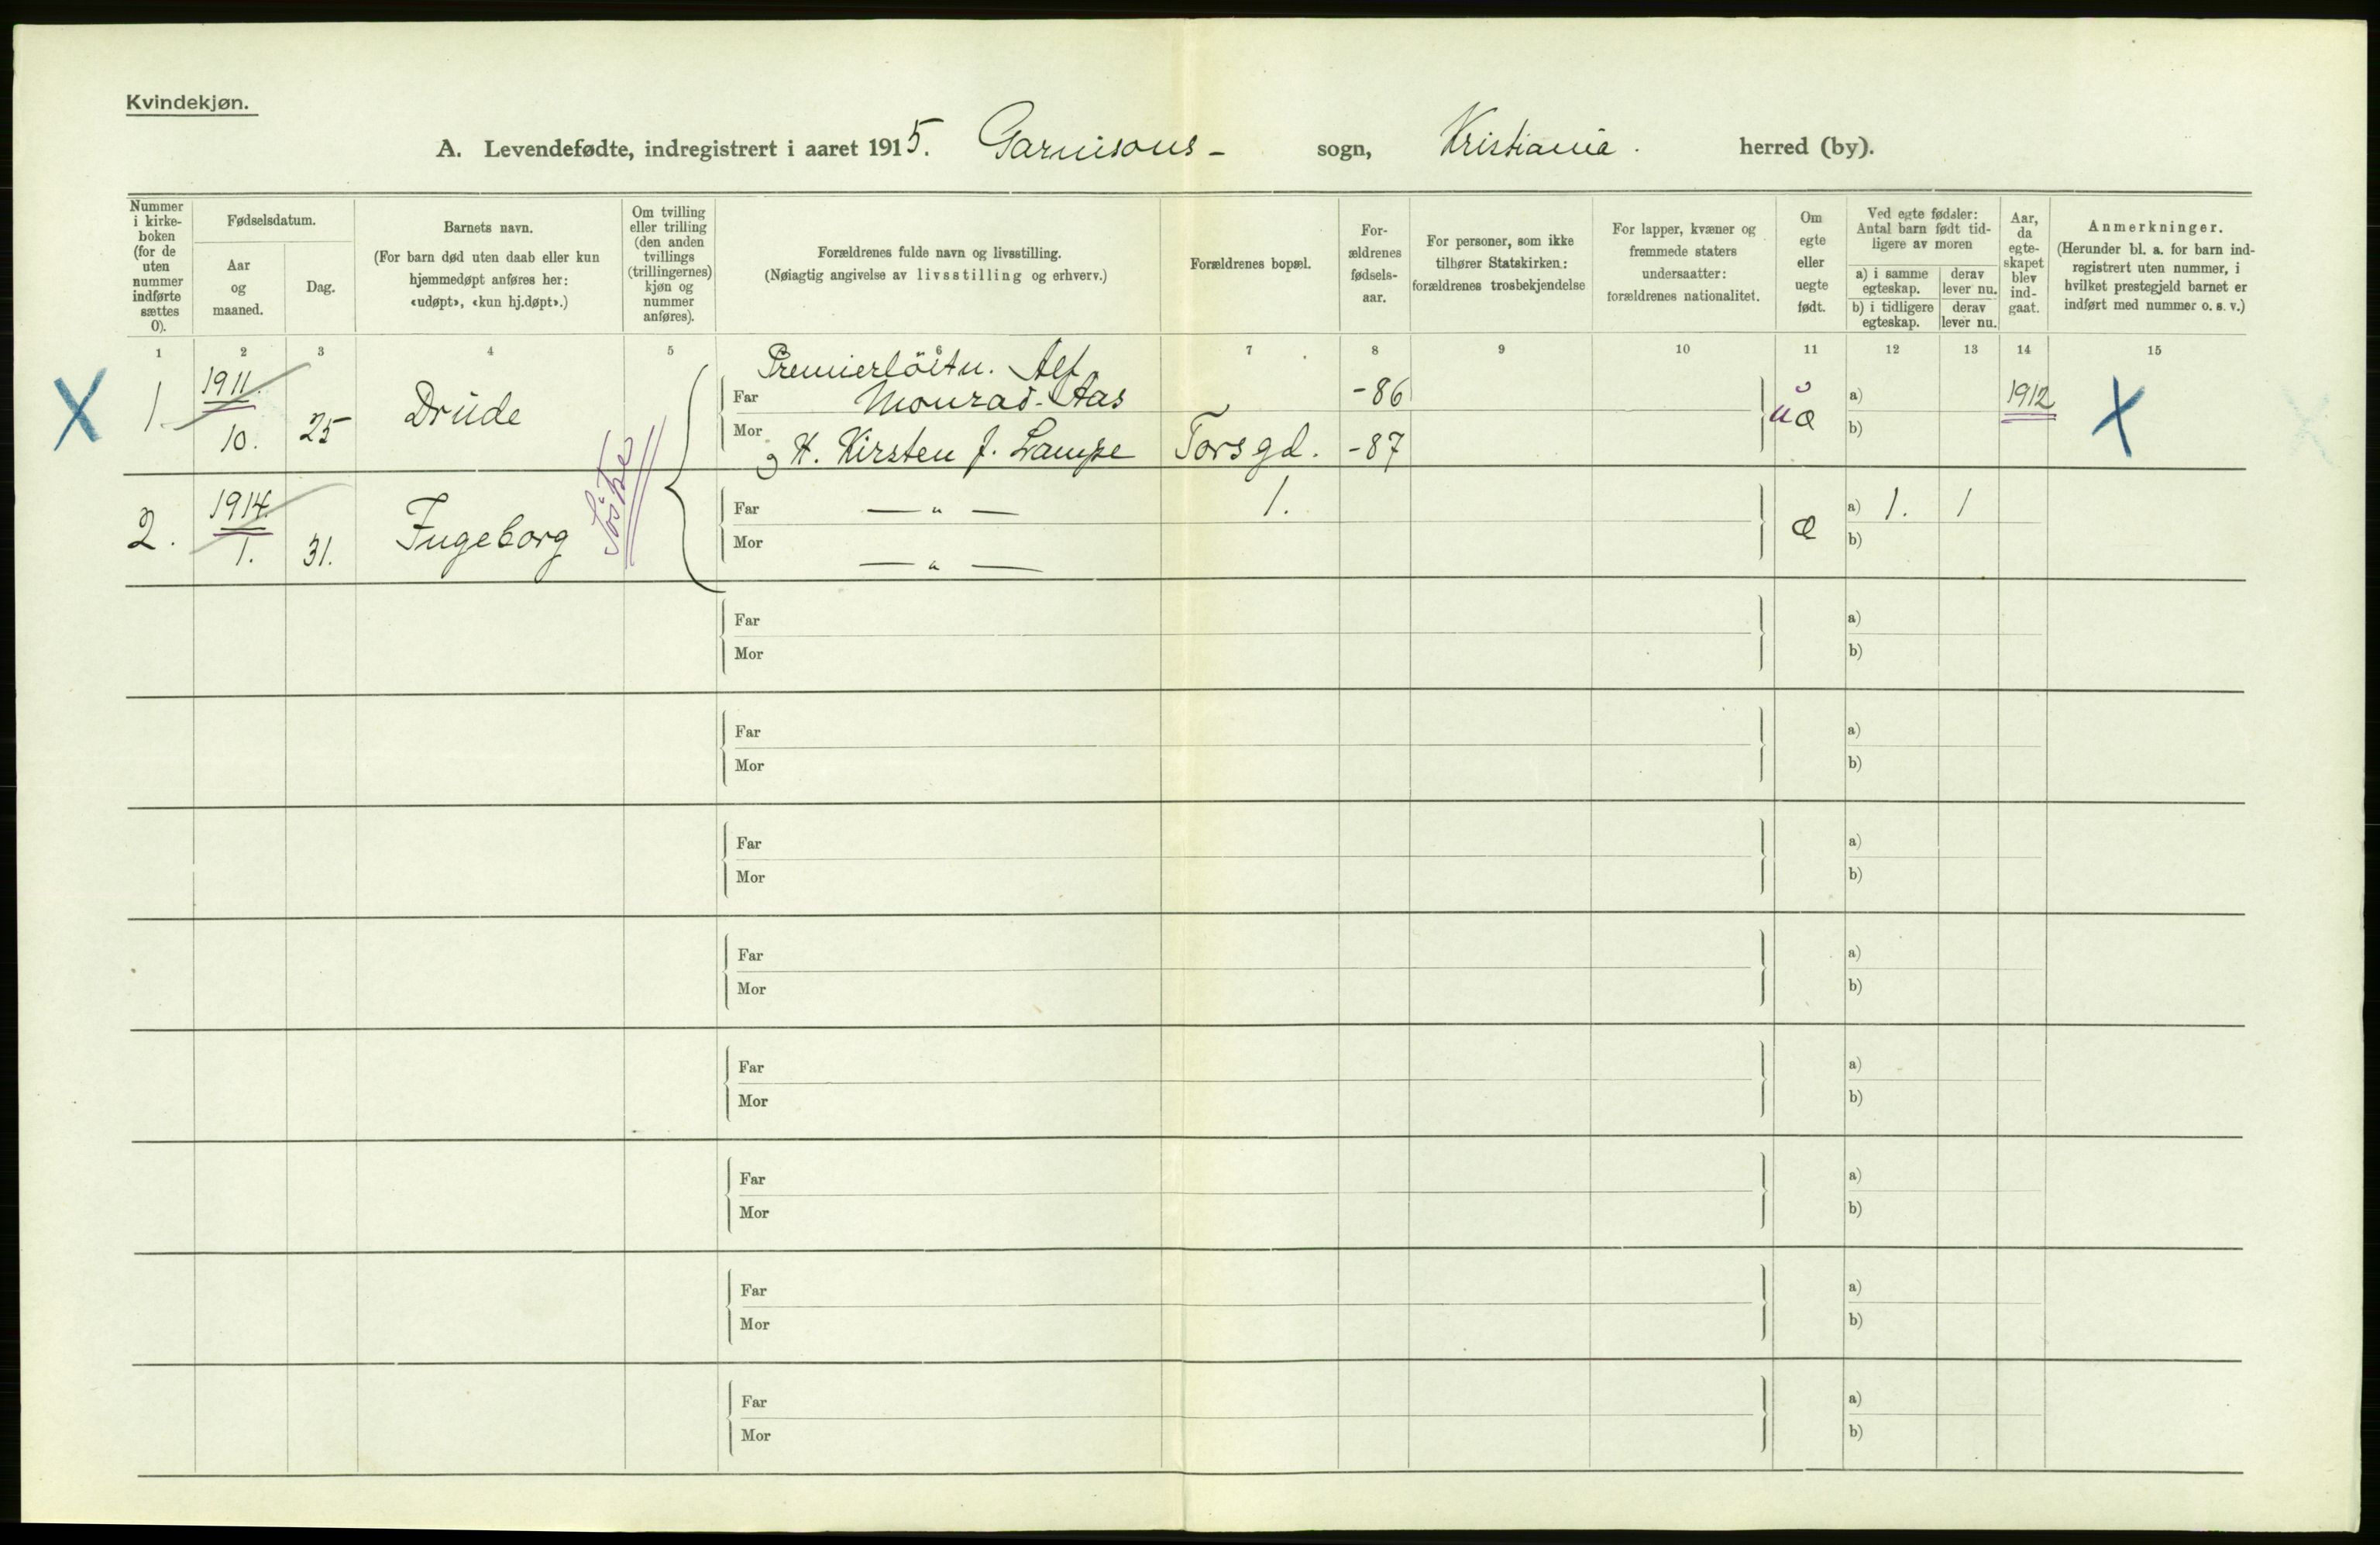 Kvindekjøn.
A. Levendefødte, indregistrert i aaret 1915. Garnisons- sogn, Kristiania. herred (by).
Nummer i kirke-boken (for de uten nummer indførte sættes 0).
Fødselsdatum.
Aar og maaned.
Dag.
Barnets navn.
(For barn død uten daab eller kun hjemmedøpt anføres her: «udøpt», «kun hj.døpt».)
Om tvilling eller trilling (den anden tvillings (trillingernes) kjøn og nummer anføres).
Forældrenes fulde navn og livsstilling.
(Nøiagtig angivelse av livsstilling og erhverv.)
Forældrenes bopæl.
For-ældrenes fødsels-aar.
For personer, som ikke tilhører Statskirken: forældrenes trosbekjendelse
For lapper, kvæner og fremmede staters undersaatter: forældrenes nationalitet.
Om egte eller uegte født.
Ved egte fødsler: Antal barn født tid-ligere av moren
a) i samme egteskap.
derav lever nu.
b) i tidligere egteskap.
derav lever nu.
Aar, da egte-skapet blev ind-gaat.
Anmerkninger.
(Herunder bl. a. for barn ind-registrert uten nummer, i hvilket prestegjeld barnet er indført med nummer o. s. v.)
1 2 3 4 5 6 7 8 9 10 11 12 13 14 15
X 1. 1911. 10. 25 Drude
Premierløitn. Alf
Far Monrad-Aas -86
Mor og H. Kirsten J. Lampe Torsgd. -87
a)
b)
1912 X
2. 1914. 1. 31. Ingeborg
Far — " — 1.
Mor — " —
æ
a) 1. 1
b)
Far a)
Mor b)
Far a)
Mor b)
Far a)
Mor b)
Far a)
Mor b)
Far a)
Mor b)
Far a)
Mor b)
Far a)
Mor b)
Far a)
Mor b)